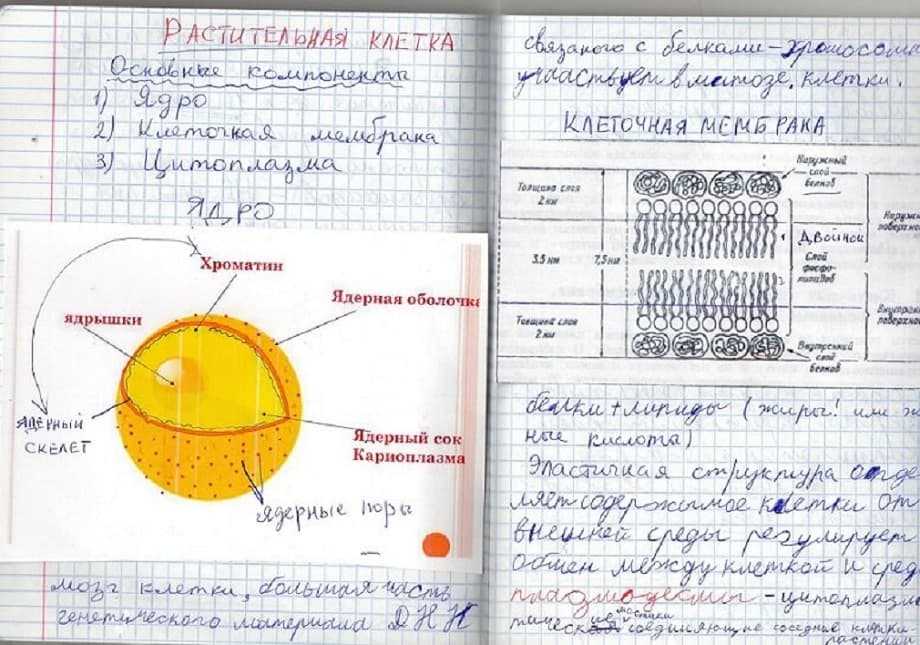 РАСТИТЕЛЬНАЯ КЛЕТКА
Основные компоненты
1) Ядро
2) Клеточная мембрана
3) Цитоплазма
ЯДРО
Хроматин
Ядерная оболочка
ядрышки
ЯДЕРНЫЙ
СКЕЛЕТ
Ядерный сок
Кариоплазма
ядерные поры
мозг клетки, большая часть
генетического материала ДНК
связаного с белками - хромосома
участвует в митозе, клетки.
КЛЕТОЧНАЯ МЕМБРАНА
Толщина слоя
2 нм
3.5 нм
7,5 нм
Толщина слоя
2 нм
Наружный
слой
белков
1 ДВОЙНОЙ
Слой
фосфо-
липидов
2
Внутренний
слой
белков
Наружн
поверхнос
Внутренн
поверхнос
белки + липиды (жиры! или ж
ные кислоты)
Эластичная структура отде
ляет содержимое клетки от
внешней среды регулирует
обмен между клеткой и сред
плазмодесмы - цитоплазма
тические мостики
соединяющие соседние клетки
растений